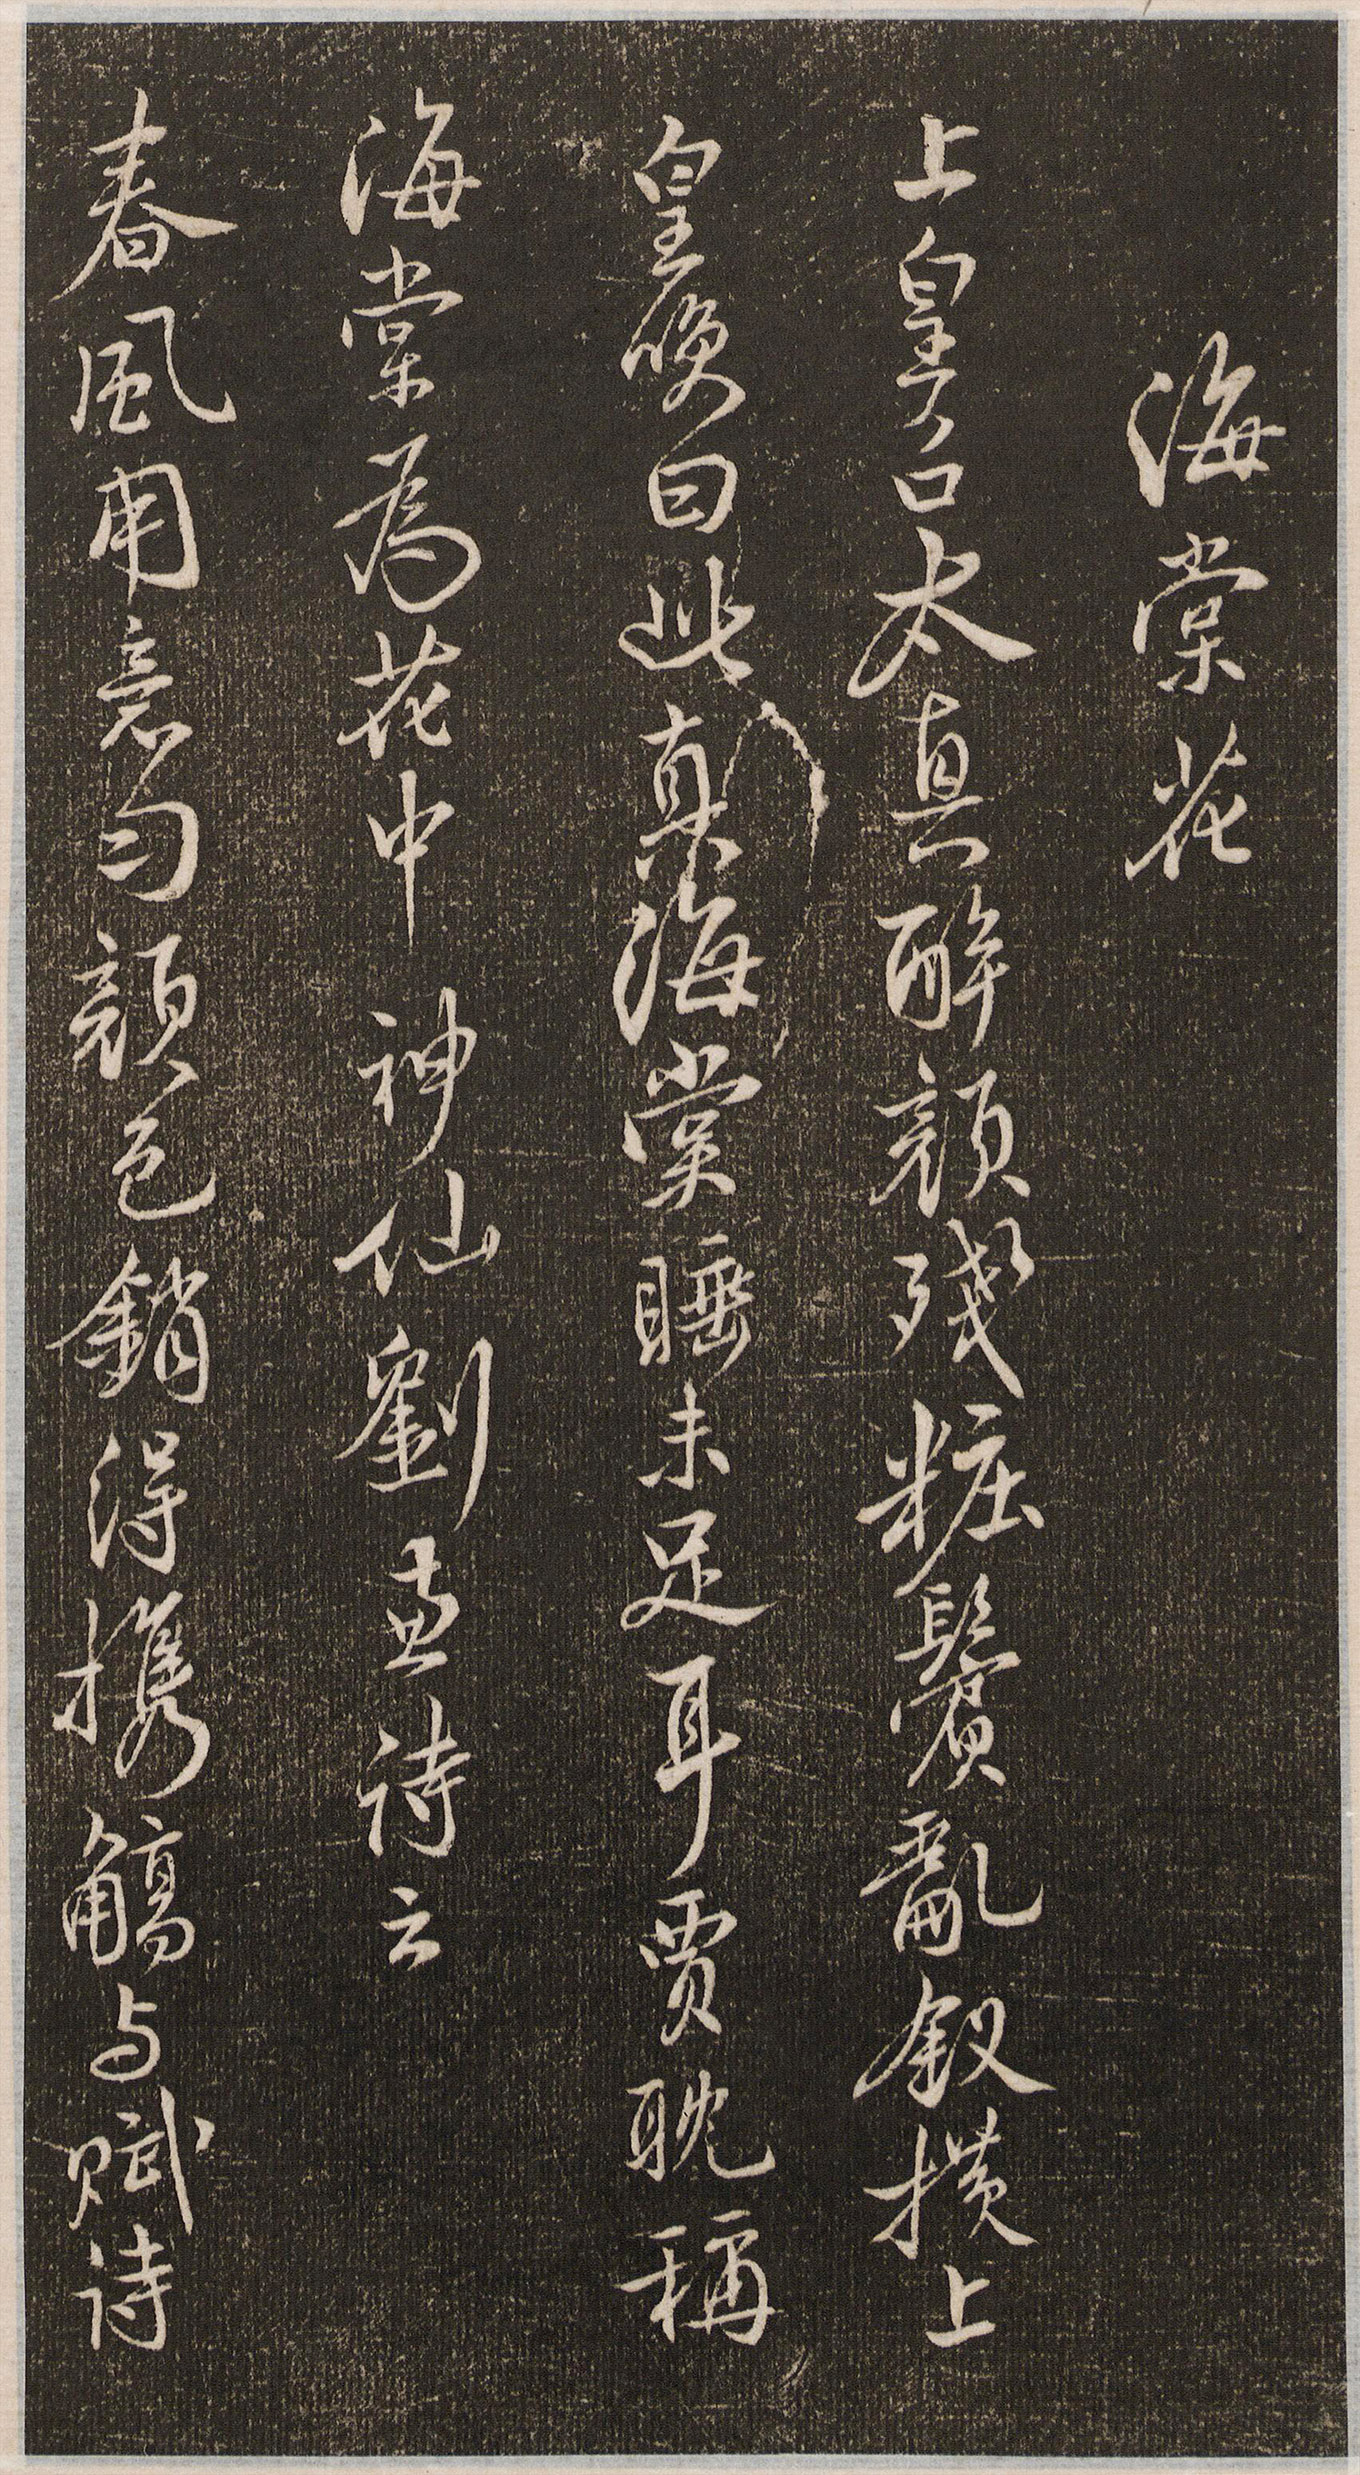 海棠花
上皇召太真醉顏殘粧鬢亂釵橫上
皇笑曰此真海棠睡未足耳賈耽稱
海棠為花中神仙劉孟詩云
春風用意勻顏色銷得攜觴與賦詩